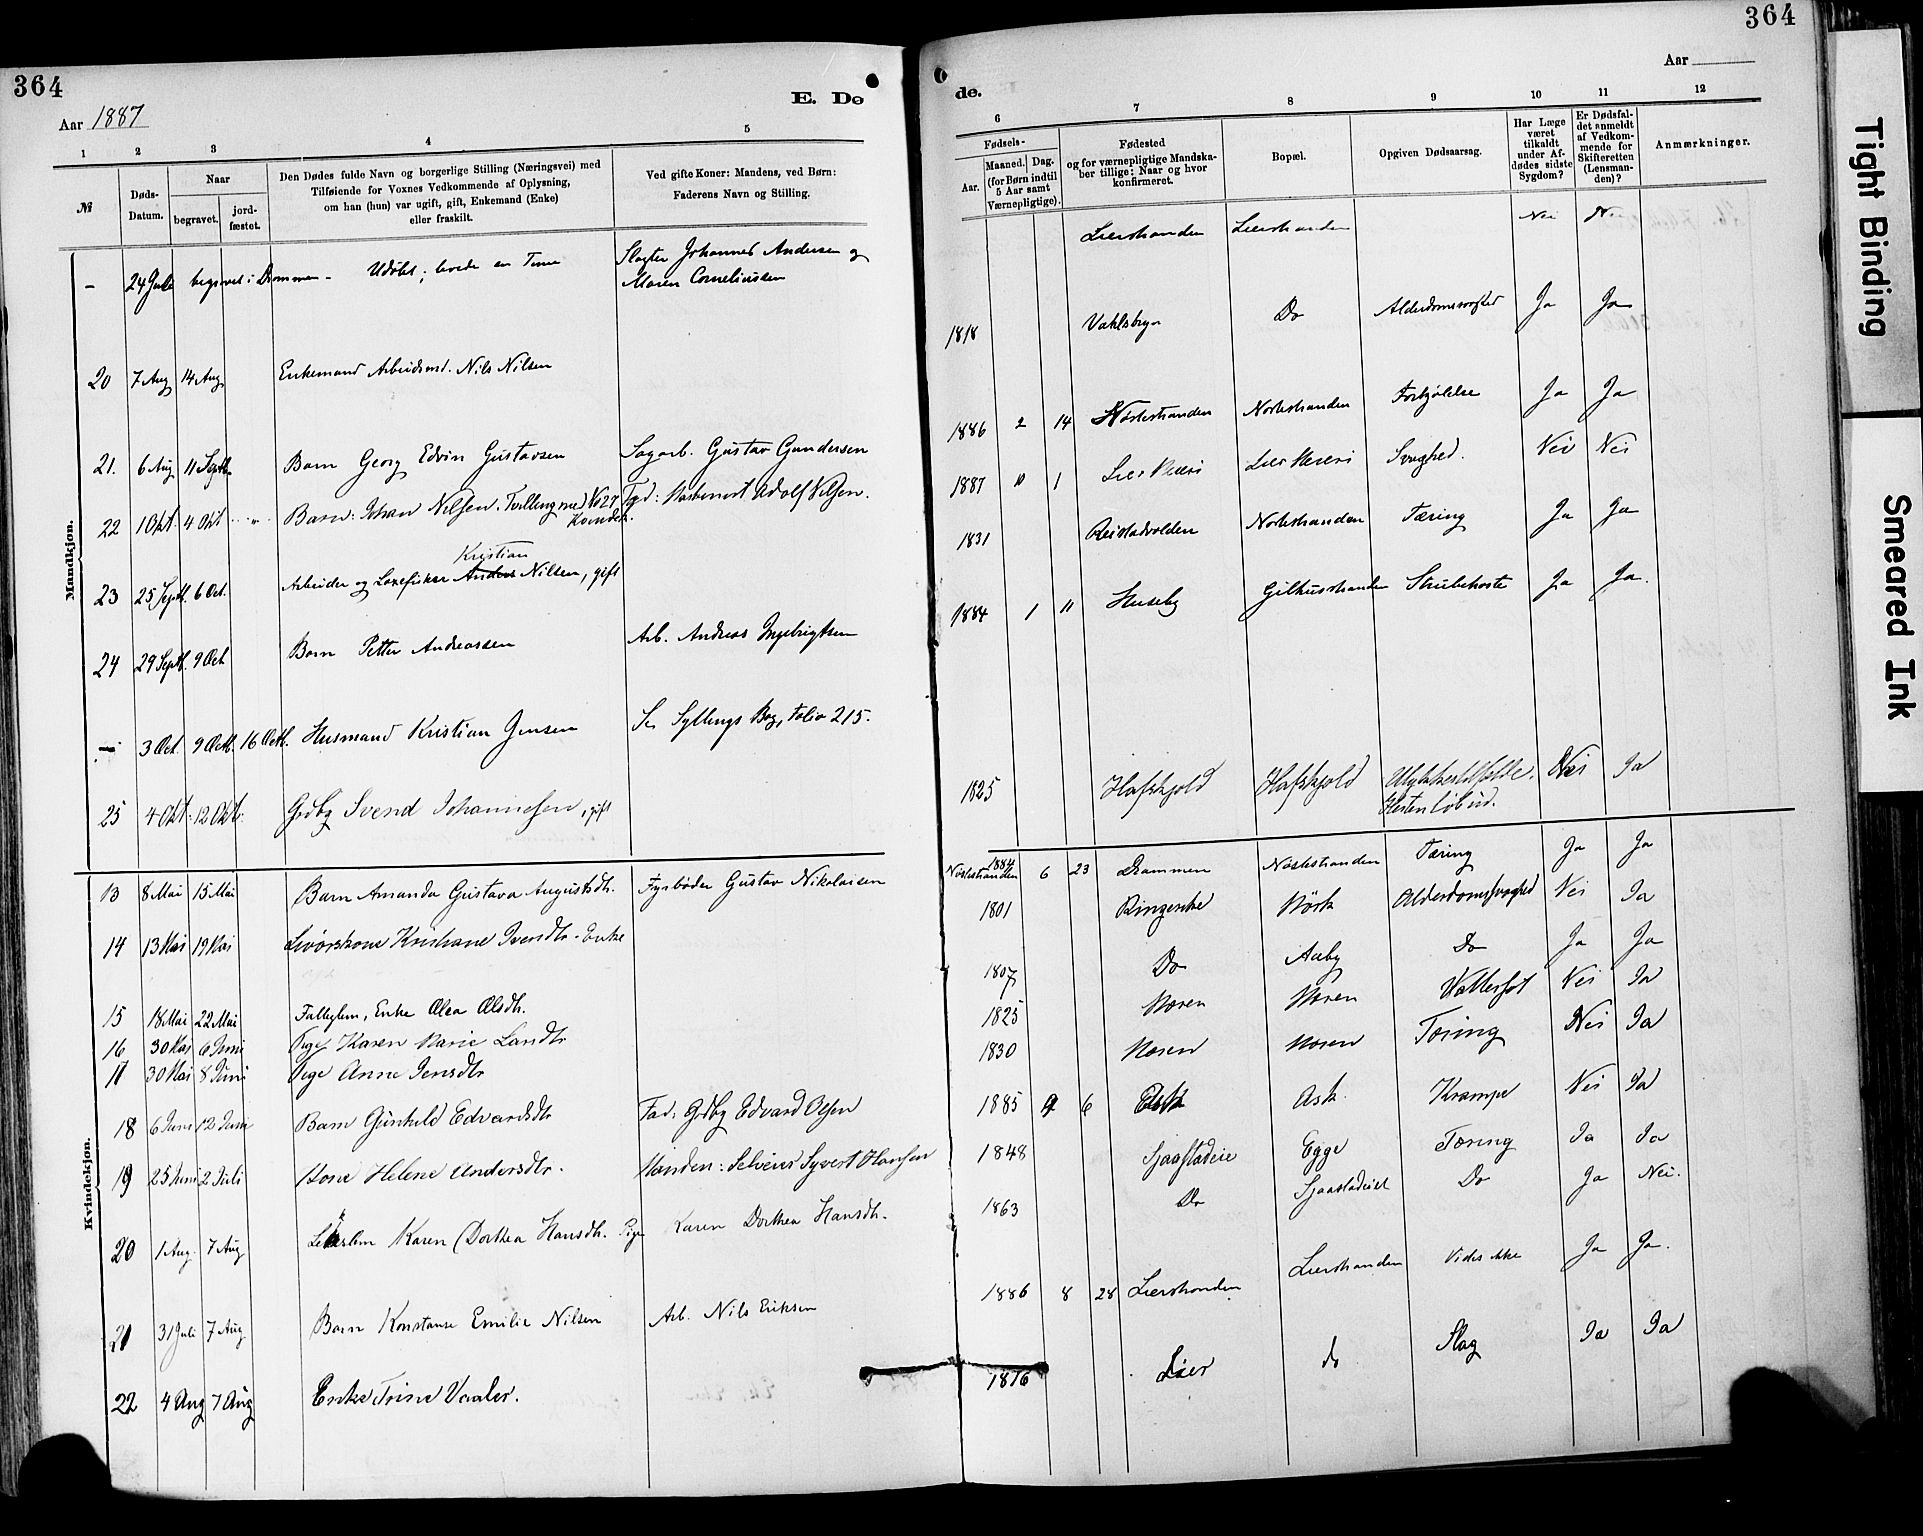 364
Aar 1887
E. Dø
1 2 3 4 5
№
Døds-
Datum.
Naar
begravet.
jord-
fæstet.
Den Dødes fulde Navn og borgerlige Stilling (Næringsvei) med
Tilføiende for Voxnes Vedkommende af Oplysning,
om han (hun) var ugift, gift, Enkemand (Enke)
eller fraskilt.
Ved gifte Koner: Mandens, ved Børn:
Faderens Navn og Stilling.
Mandkjøn.
- 24 Juli begravet i Drammen - Udøbt; levede en Time Slagter Johannes Andersen og
Maren Corneliussen
20 7 Aug 14 Aug Enkemand Arbeidsmd. Nils Nilsen
21. 6 Aug 11 Septb. Barn Georg Edvin Gustavsen Sagarb. Gustav Gundersen
22 1 Okt. 4 Okt. " Barn: Johan Nilsen. Tvilling med No 27 Kvindek. Fad: Adolf Nilsen.
23 25 Septb. 6 Oct. Arbeider og Laxefisker Anders Kristian Nilsen, gift
24 29 Septb. 9 Oct Barn Petter Andreassen Arb. Andreas Ingebrigtsen
- 3 Oct. 9 Octb. 16 Octb. Husmand Kristian Jensen Se Syllings Bog, Folio 215.
25 4 Okt. 12 Okt. Grdbg Svend Johannesen, gift
Kvindekjøn.
13 8 Mai 15 Mai Barn Amanda Gustava Augustsdtr. Fyrbøder Gustav Nikolaisen
14 13 Mai 19 Mai Kristiane Svendtr. Enke
15 18 Mai 22 Mai Enke Olea Olsdtr.
16 30 Mai 6 Juni Pige Karen Marie Larsdtr
17 30 Mai 8 Juni Pige Anne Jensdtr
18 6 Juni 12 Juni Barn Gunhild Edvardsdtr Fad: Grdbg Edvard Olsen
19 25 Juni 2 Juli Kone Helene Andersdtr. Manden: Selveier Syvert Hansen
20 1 Aug. 7 Aug Karen Dorthea Hansdtr. Pige Karen Dorthea Hansdtr.
21 31 Juli 7 Aug Barn Konstanse Emilie Nilsen Arb. Nils Eriksen
22 4 Aug 7 Aug Enke Trine Vaaler.
364
Aar
de.
6 7 8 9 10 11 12
Fødsels-
Aar.
Maaned.
Dag.
(for Børn indtil
5 Aar samt
Værnepligtige).
Fødested
og for værnepligtige Mandska-
ber tillige: Naar og hvor
konfirmeret.
Bopæl.
Opgiven Dødsaarsag.
Har Læge
været
tilkaldt
under Af-
dødes sidste
Sygdom?
Er Dødsfal-
det anmeldt
af Vedkom-
mende for
Skifteretten
(Lensman-
den)?
Anmærkninger.
Lierstranden Lierstranden Nei Nei
1818 Vahlsbryn Do Alderdomssvaghed Ja Ja
1886 2 14 Nøstestranden Nøstestranden Forkjølelse Ja Ja
1887 10 1 Lier Meieri Lier Meieri Svaghed. Nei Nei
1831 Reistadvolden Nøstestranden Tæring Ja Ja
1884 1 11 Huseby Gilhusstranden Strubehoste Ja Ja.
1825 Hafskjold Hafskjold Ulykkestilfælde. Nei Ja
Hesten løb ud.
Nøstestranden 1884 6 23 Drammen Nøstestranden Tæring Ja Ja
1801 Ringerike Mörk Alderdomssvaghed Nei Ja
1807 Do Aaby Do Ja Ja
1825 Moren Moren Vattersot Nei Ja
1830 Moren Moren Tæring Nei Ja
1885 9 6 Ask Ask. Krampe Nei Ja
1848 Sjaastadeie Egge Tæring Ja Ja
1863 Do Sjaastadeiet Do Ja Nei.
1886 8 28 Lierstranden Lierstranden Vides ikke Ja Ja.
1816 Lier do Slag Ja Ja
Tight Binding
Smeared Ink